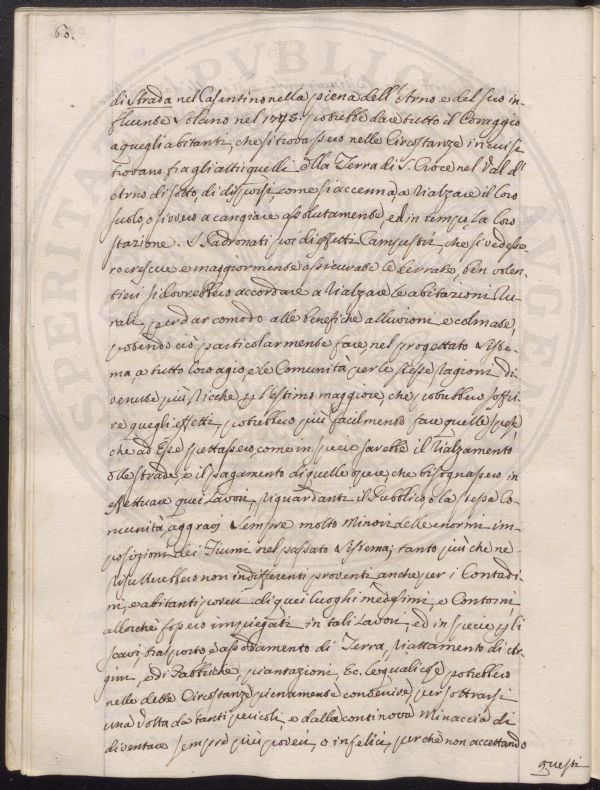 60.
di Strada nel Casentino nella piena dell'Arno e del suo in-
fluente Solano nel 1748. potrebbe dare tutto il Coraggio
a quegli abitanti, che si trovassero nelle Circostanze in cui si
trovano fra gli altri quelli della Terra di S. Croce nel Val d'
Arno di sotto, di disporsi, come si accenna, a rialzare il loro
suolo, o sivvero a cangiare assolutamente, ed in tempo la loro
stazione. I Padronati poi di effetti Campestri, che si vedesse-
ro crescere e maggiormente assicurate le Serrate, ben volen-
tieri si dovrebbero accordare a rialzare le abitazioni Ru-
rali, per dar comodo alle benefiche alluvioni, e colmate,
potendo ciò particolarmente fare, nel progettato Siste-
ma, a tutto loro agio, e le Comunità per le stesse ragioni di-
venute più ricche, per l'estimo maggiore, che potrebbero soffri-
re quegli effetti, potrebbero più facilmente fare quelle spese
che ad Esse spettassero, come in specie sarebbe il rialzamento
delle strade, e il pagamento di quelle opere, che bisognassero in
effettuare quei Lavori, riguardanti il Pubblico, o la stessa Co-
munità, aggravj sempre molto minori delle enormi im-
posizioni dei Fiumi nel passato Sistema; tanto più che ne
risulterebbero non indifferenti proventi anche per i Contadi-
ni, e abitanti poveri di quei luoghi medesimi, e Contorni,
allorchè fossero impiegati in tali Lavori, ed in specie per gli
scavi, trasporto e assodamento di Terra, riattamento di Ar-
gini, e di Fabbriche, piantazioni, &c. le quali cose potrebbero
nelle dette Circostanze pienamente convenire, per sottrarsi
una volta da tanti pericoli, e dalla continova minaccia di
diventare sempre più poveri, o infelici, perchè non accettando
questi